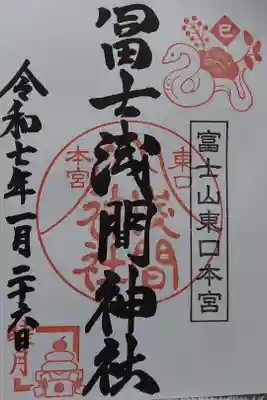 巳
富士山東口本宮
冨士浅間神社
東口
本宮
浅間
神社
令和七年一月二十六日
睦月